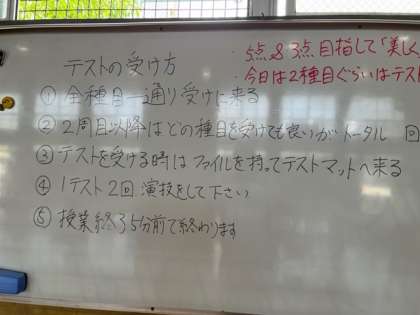 5点&3点目指して「美しく
・今日は2種目ぐらいはテス
テストの受け方
① 全種目一通り受けに来る
② 2周目以降はどの種目を受けても良いがトータル 回
③ テストを受ける時はファイルを持ってテストマットへ来る
④ 1テスト2回演技をして下さい
⑤ 授業終了5分前で終わります